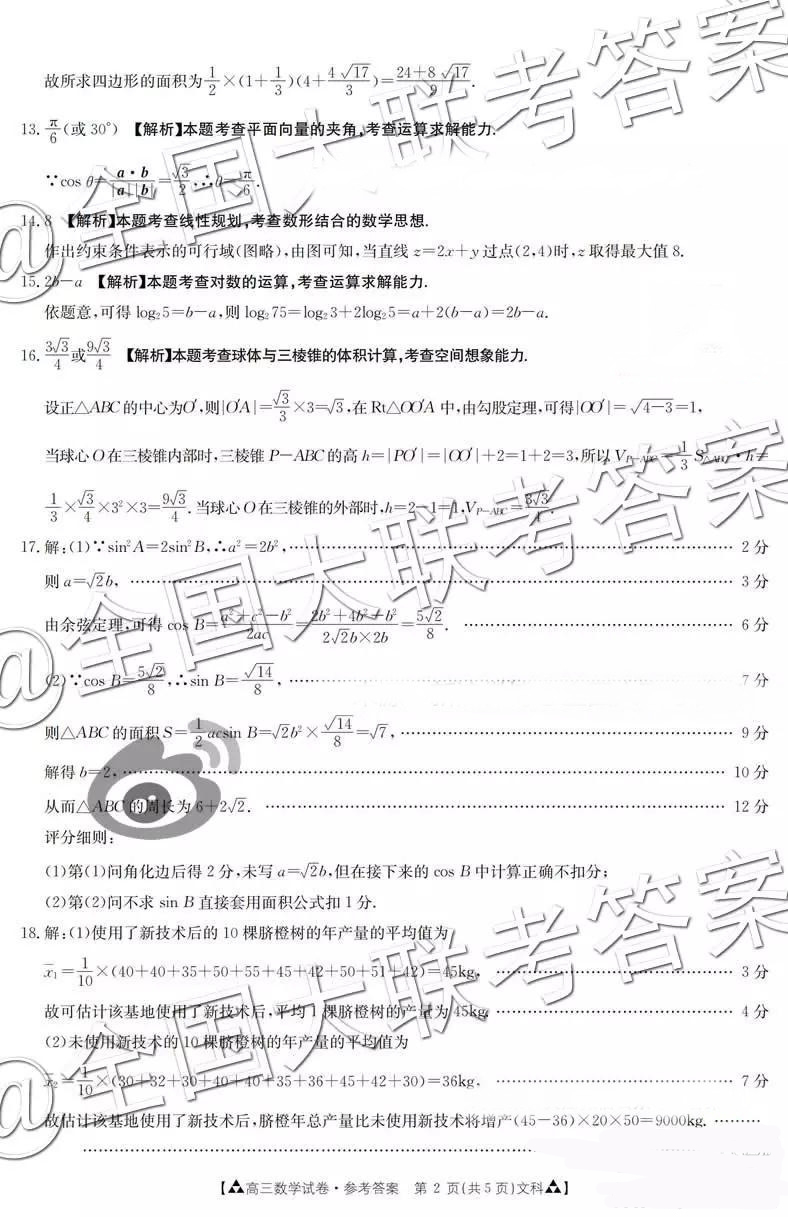 故所求四边形的面积为1/2×(1+1/3)(4+4√17/3)=(24+8√17)/9.
13. π/6(或 30°) 【解析】本题考查平面向量的夹角,考查运算求解能力.
∵cos θ=a·b/|a||b|=√3/2,∴θ=π/6.
14. 8 【解析】本题考查线性规划,考查数形结合的数学思想.
作出约束条件表示的可行域(图略),由图可知,当直线 z=2x+y 过点(2,4)时,z 取得最大值 8.
15. 2b-a 【解析】本题考查对数的运算,考查运算求解能力.
依题意,可得 log₂5=b-a,则 log₂75=log₂3+2log₂5=a+2(b-a)=2b-a.
16. 3√3/4或9√3/4 【解析】本题考查球体与三棱锥的体积计算,考查空间想象能力.
设正△ABC的中心为O′,则|O′A|=√3/3×3=√3,在 Rt△OO′A 中,由勾股定理,可得|OO′|=√(4-3)=1,
当球心O在三棱锥内部时,三棱锥 P-ABC 的高 h=|PO′|=|OO′|+2=1+2=3,所以 V_{P-ABC}=1/3 S_{△ABC}·h=
1/3×√3/4×3²×3=9√3/4. 当球心O在三棱锥的外部时,h=2-1=1,V_{P-ABC}=3√3/4.
17. 解:(1)∵sin²A=2sin²B,∴a²=2b², …… 2 分
则 a=√2b, …… 3 分
由余弦定理,可得 cos B=(a²+c²-b²)/2ac=(2b²+4b²-b²)/(2√2b×2b)=5√2/8. …… 6 分
(2)∵cos B=5√2/8,∴sin B=√14/8, …… 7 分
则△ABC 的面积 S=1/2 acsin B=√2b²×√14/8=√7, …… 9 分
解得 b=2, …… 10 分
从而△ABC 的周长为 6+2√2. …… 12 分
评分细则:
(1)第(1)问角化边后得 2 分,未写 a=√2b,但在接下来的 cos B 中计算正确不扣分;
(2)第(2)问不求 sin B 直接套用面积公式扣 1 分.
18. 解:(1)使用了新技术后的 10 棵脐橙树的年产量的平均值为
x̄₁=1/10×(40+40+35+50+55+45+42+50+51+42)=45kg, …… 3 分
故可估计该基地使用了新技术后,平均 1 棵脐橙树的产量为 45kg. …… 4 分
(2)未使用新技术的 10 棵脐橙树的年产量的平均值为
x̄₂=1/10×(30+32+30+40+40+35+36+45+42+30)=36kg. …… 7 分
故估计该基地使用了新技术后,脐橙年总产量比未使用新技术将增产(45-36)×20×50=9000kg. ……
【高三数学试卷·参考答案 第 2 页(共 5 页)文科】
@全国大联考答案
@全国大联考答案
@全国大联考答案